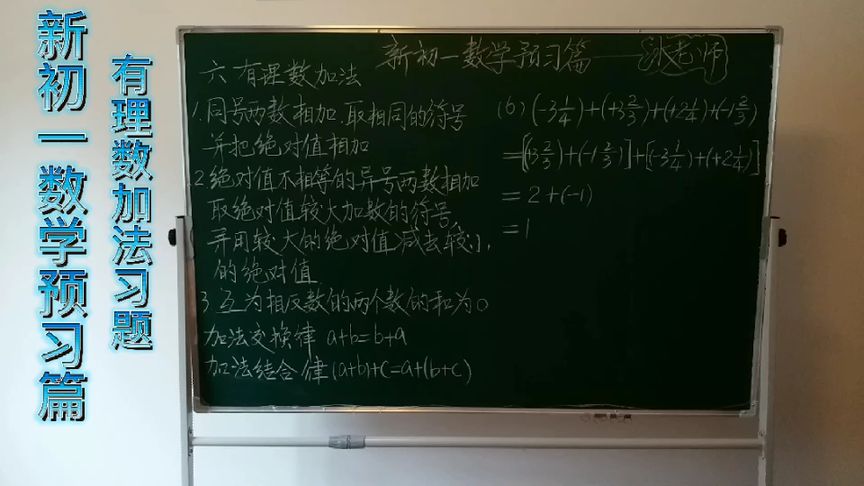 新初一数学预习篇
有理数加法习题
新初一数学预习篇——张老师
六 有理数加法
1.同号两数相加,取相同的符号
并把绝对值相加
2 绝对值不相等的异号两数相加
取绝对值较大加数的符号,
并用较大的绝对值减去较小
的绝对值
3 互为相反数的两个数的和为0
加法交换律 a+b=b+a
加法结合律(a+b)+c=a+(b+c)
(6)(-3 1/4)+(+3 2/3)+(+2 1/4)+(-1 2/3)
=[(+3 2/3)+(-1 2/3)]+[(-3 1/4)+(+2 1/4)]
=2+(-1)
=1